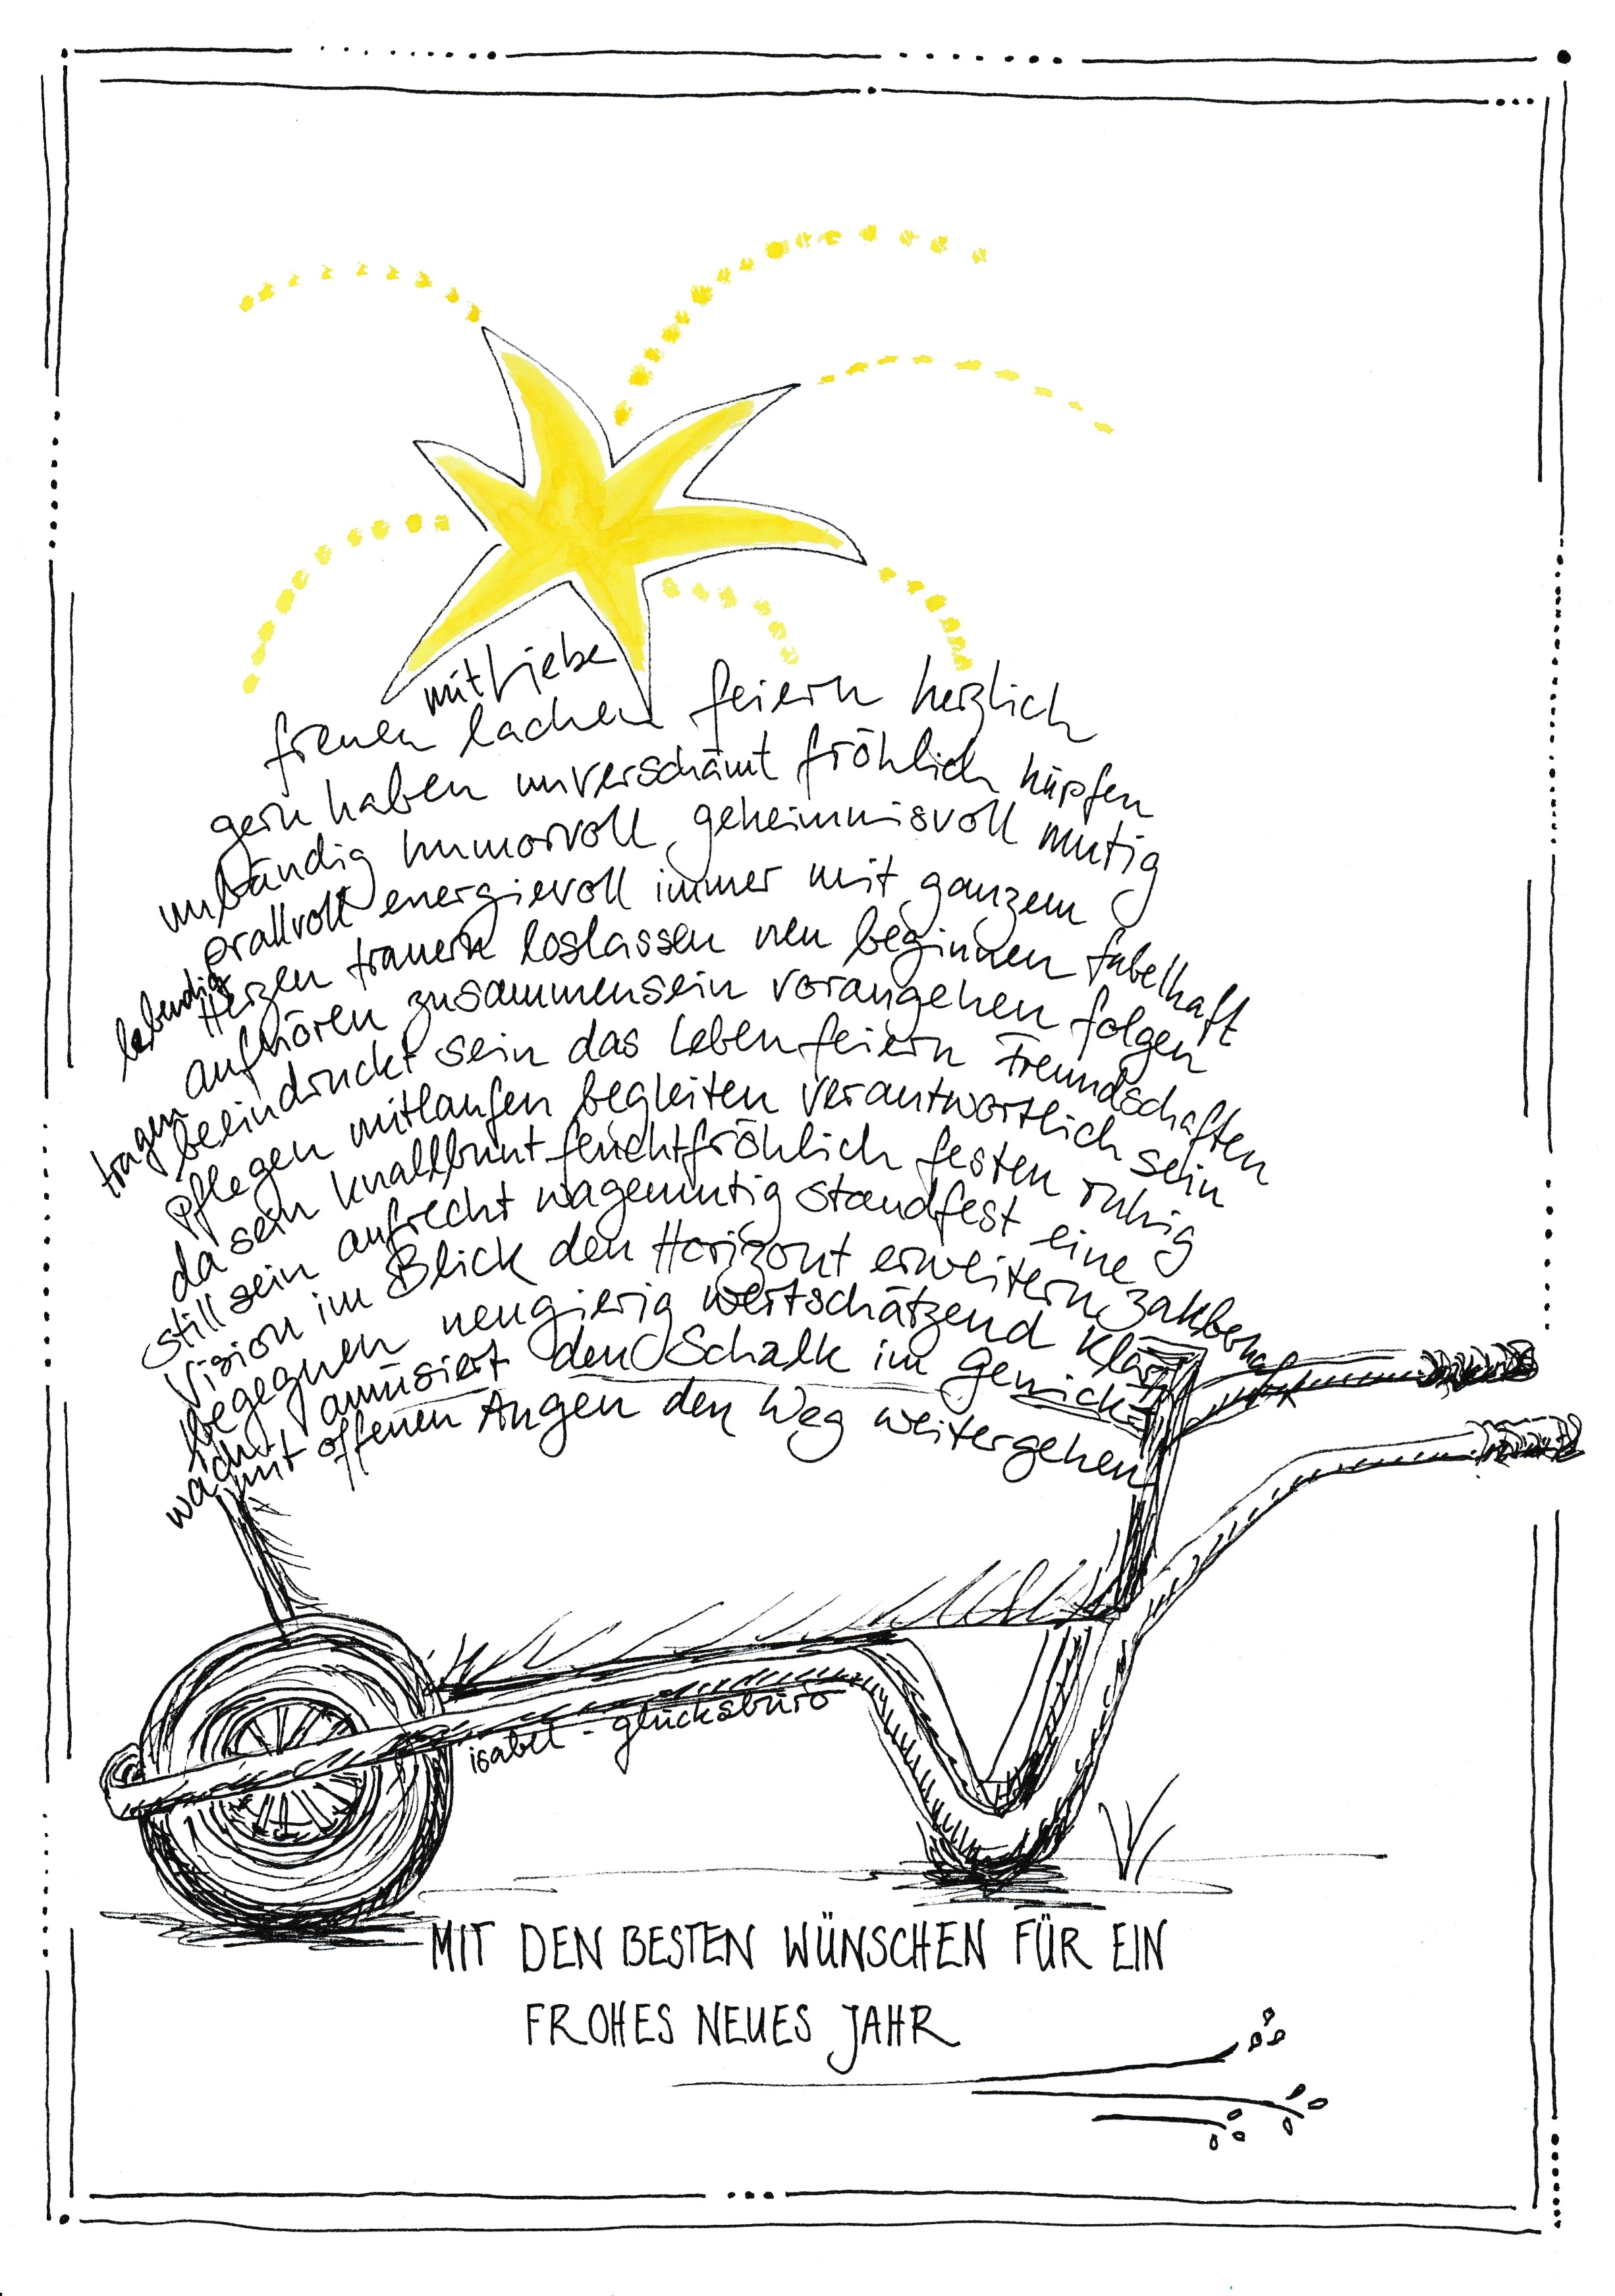 mit Liebe
freuen lachen feiern herzlich
gern haben unverschämt fröhlich hüpfen
unbändig humorvoll geheimnisvoll mutig
prallvoll energievoll immer mit ganzem
lebendig
Herzen trauern loslassen neu beginnen fabelhaft
aufhören zusammensein vorangehen folgen
tragen
beeindruckt sein das Leben feiern Freundschaften
pflegen mitlaufen begleiten verantwortlich sein
da sein knallbunt feuchtfröhlich festen ruhig
still sein aufrecht wagemutig standfest eine
Vision im Blick den Horizont erweitern zauberhaft
begegnen neugierig wertschätzend klar
wach amüsiert den Schalk im Genick
mit offenen Augen den Weg weitergehen
isabel - glücksbüro
MIT DEN BESTEN WÜNSCHEN FÜR EIN
FROHES NEUES JAHR